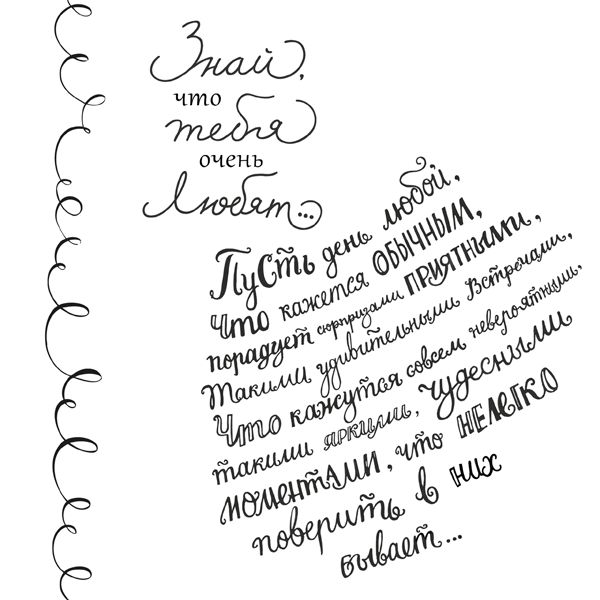 Знай,
что
тебя
очень
Любят...
Пусть день любой,
Что кажется ОБЫЧНЫМ,
порадует сюрпризами ПРИЯТНЫМИ,
Такими удивительными Встречами,
Что кажутся совсем невероятными,
такими яркими, чудесными
моментами, что НЕЛЕГКО
поверить в них
бывает...